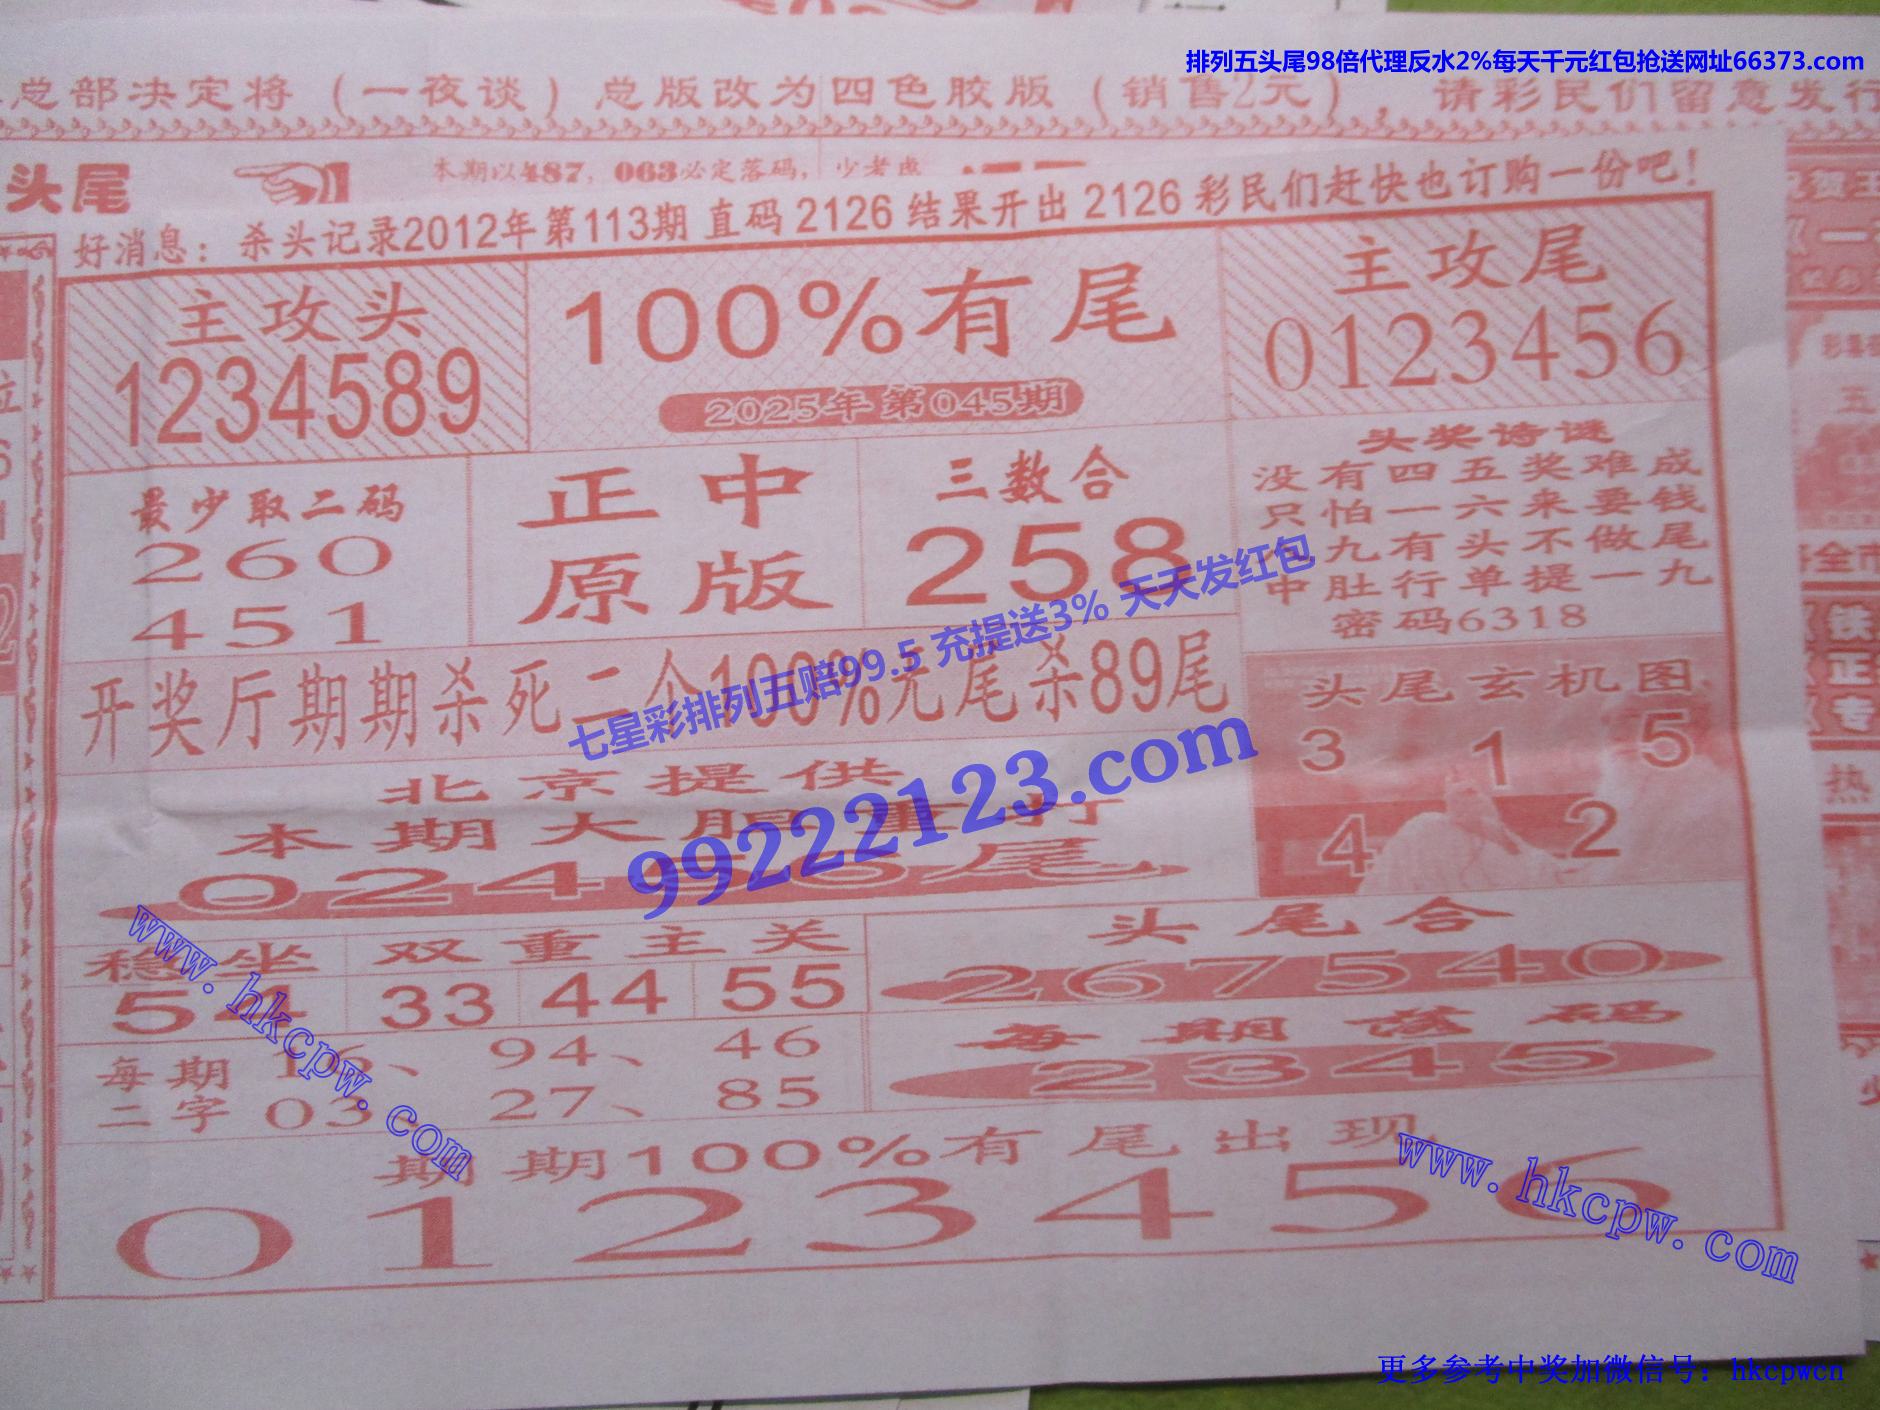 排列五头尾98倍代理反水2%每天千元红包抢送网址66373.com
总部决定将（一夜谈）总版改为四色胶版（销售2元），请彩民们留意发行
头尾
本期以487，063必定落码，少考虑
好消息：杀头记录2012年第113期 直码 2126 结果开出 2126 彩民们赶快也订购一份吧！
主攻头
1234589
100%有尾
2025年第045期
主攻尾
0123456
最少取二码
260
451
正中
原版
三数合
258
头奖诗谜
没有四五奖难成
只怕一六来要钱
九有头不做尾
中肚行单提一九
密码6318
开奖厅期期杀死二个100%无尾杀89尾
头尾玄机图
3 1 5
4 2
七星彩排列五赔99.5 充提送3% 天天发红包
99222123.com
北京提供
本期大胆重打
024 6尾
稳坐
54
双重主关
33 44 55
头尾合
267540
每期落码
2345
每期
二字
16、94、46
03、27、85
期期100%有尾出现
0123456
www.hkcpw.com
www.hkcpw.com
更多参考中奖加微信号：hkcpwcn